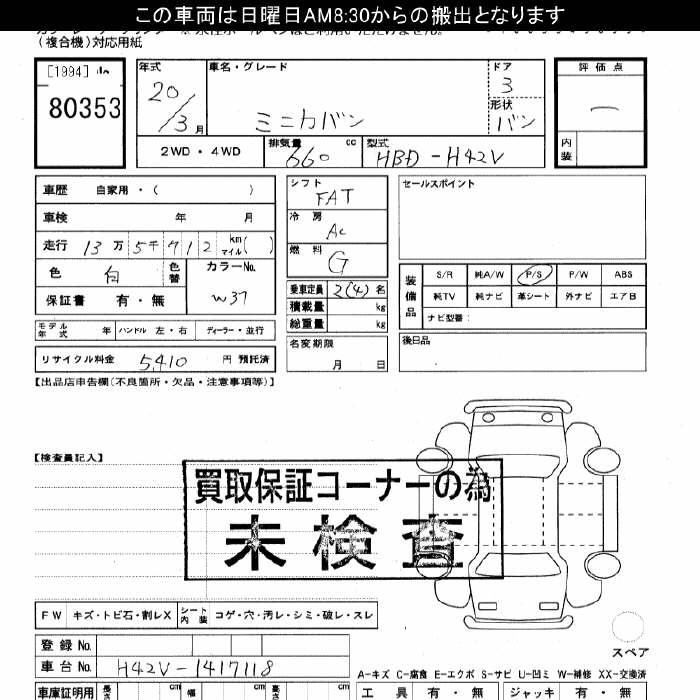 この車両は日曜日AM8:30からの搬出となります
(複合機)対応用紙
[1994]
80353
年式
20/3月
車名・グレード
ミニカバン
ドア
3
形状
バン
評価点
—
内装
2WD・4WD
排気量
660 cc
型式
HBD-H42V
車歴 自家用・( )
車検 年 月
走行 13万5千912 km マイル( )
色 白 色替
カラーNo. W37
保証書 有・無
モデル年式 年 ハンドル 左・右 ディーラー・並行
リサイクル料金 5,410 円 預託済
シフト
FAT
冷房
AC
燃料
G
乗車定員 2(4) 名
積載量 kg
総重量 kg
名変期限
月 日
セールスポイント
装備品
S/R 純A/W P/S P/W ABS
純TV 純ナビ 革シート 外ナビ エアB
ナビ型番:
後日品
【出品店申告欄(不良箇所・欠品・注意事項等)】
【検査員記入】
買取保証コーナーの為
未検査
FW キズ・トビ石・割レX シート内装 コゲ・穴・汚レ・シミ・破レ・スレ
登録No.
車台No. H42V-1417118
スペア
A-キズ C-腐食 E-エクボ S-サビ U-凹ミ W-補修 XX-交換済
車庫証明用 長さ cm 幅 cm 高さ cm
工具 有・無 ジャッキ 有・無